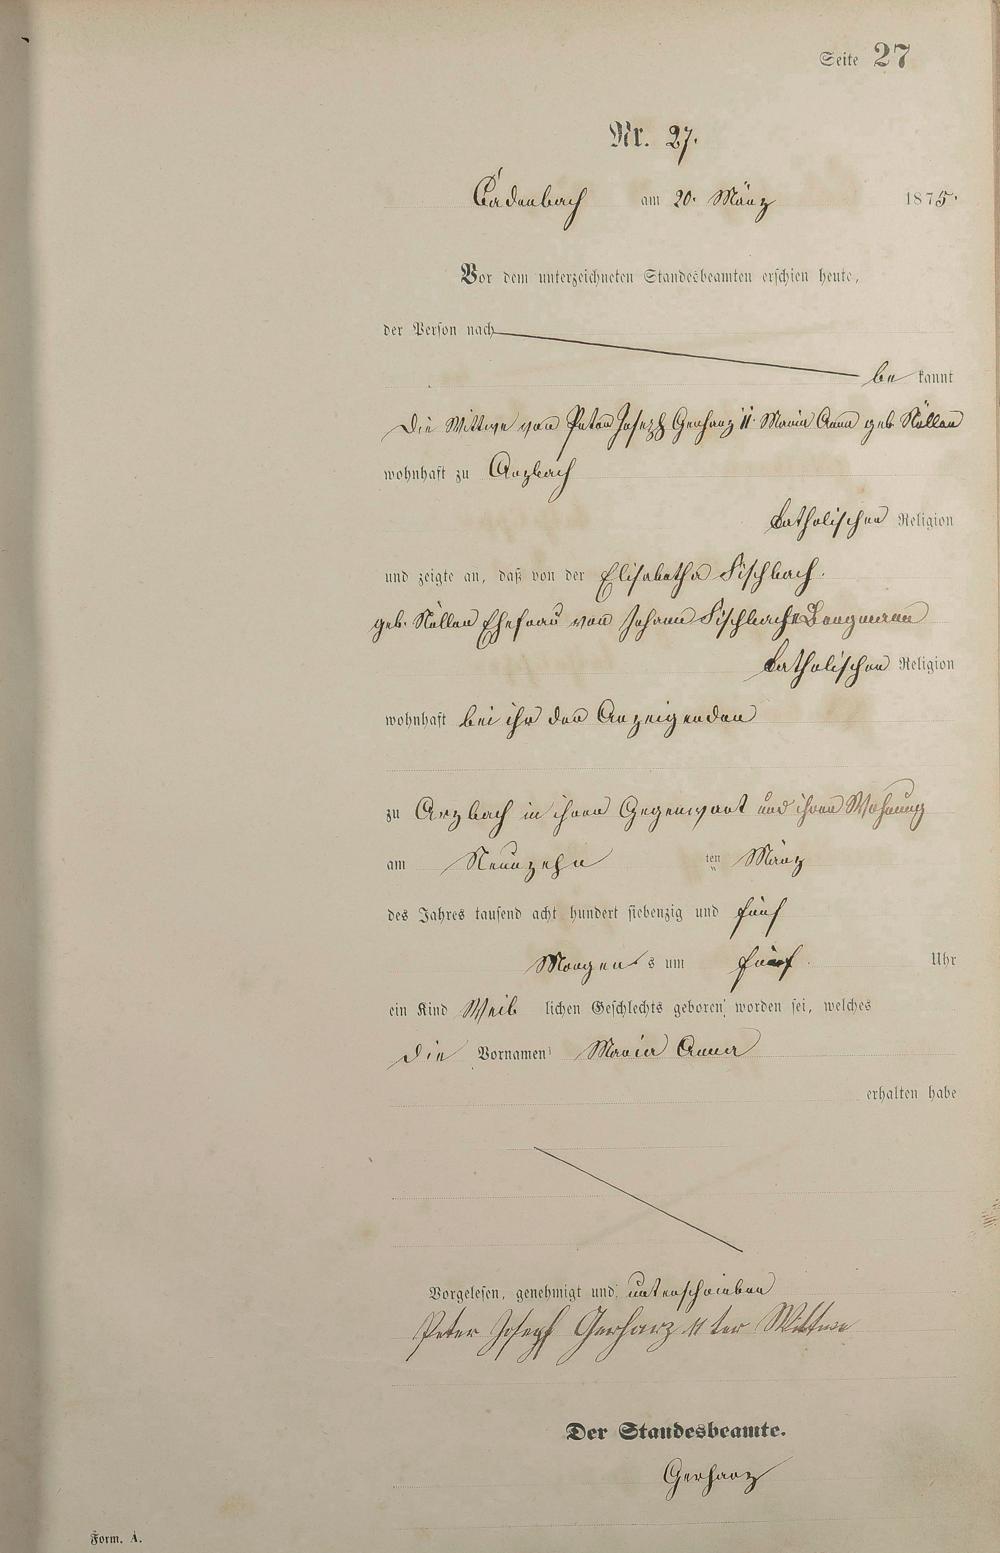 Seite 27
Nr. 27.
Cadenbach am 20. März 1875.
Vor dem unterzeichneten Standesbeamten erschien heute,
der Person nach
be kannt
die Wittwe von Peter Joseph Gerharz II. Maria Anna geb.
wohnhaft zu Arzbach
katholischen Religion
und zeigte an, daß von der Elisabetha Fischbach.
geb. Ehefrau von Johann Fischbach II Bergmann
katholischen Religion
wohnhaft bei ihr der Anzeigenden
zu Arzbach in ihrer Gegenwart und ihrer Wohnung
am Neunzehn ten März
des Jahres tausend acht hundert siebenzig und fünf
Morgens um fünf Uhr
ein Kind Weib lichen Geschlechts geboren worden sei, welches
die Vornamen Maria Anna
erhalten habe
Vorgelesen, genehmigt und unterschrieben
Peter Joseph Gerharz II ter Wittwe
Der Standesbeamte.
Gerharz
Form. A.